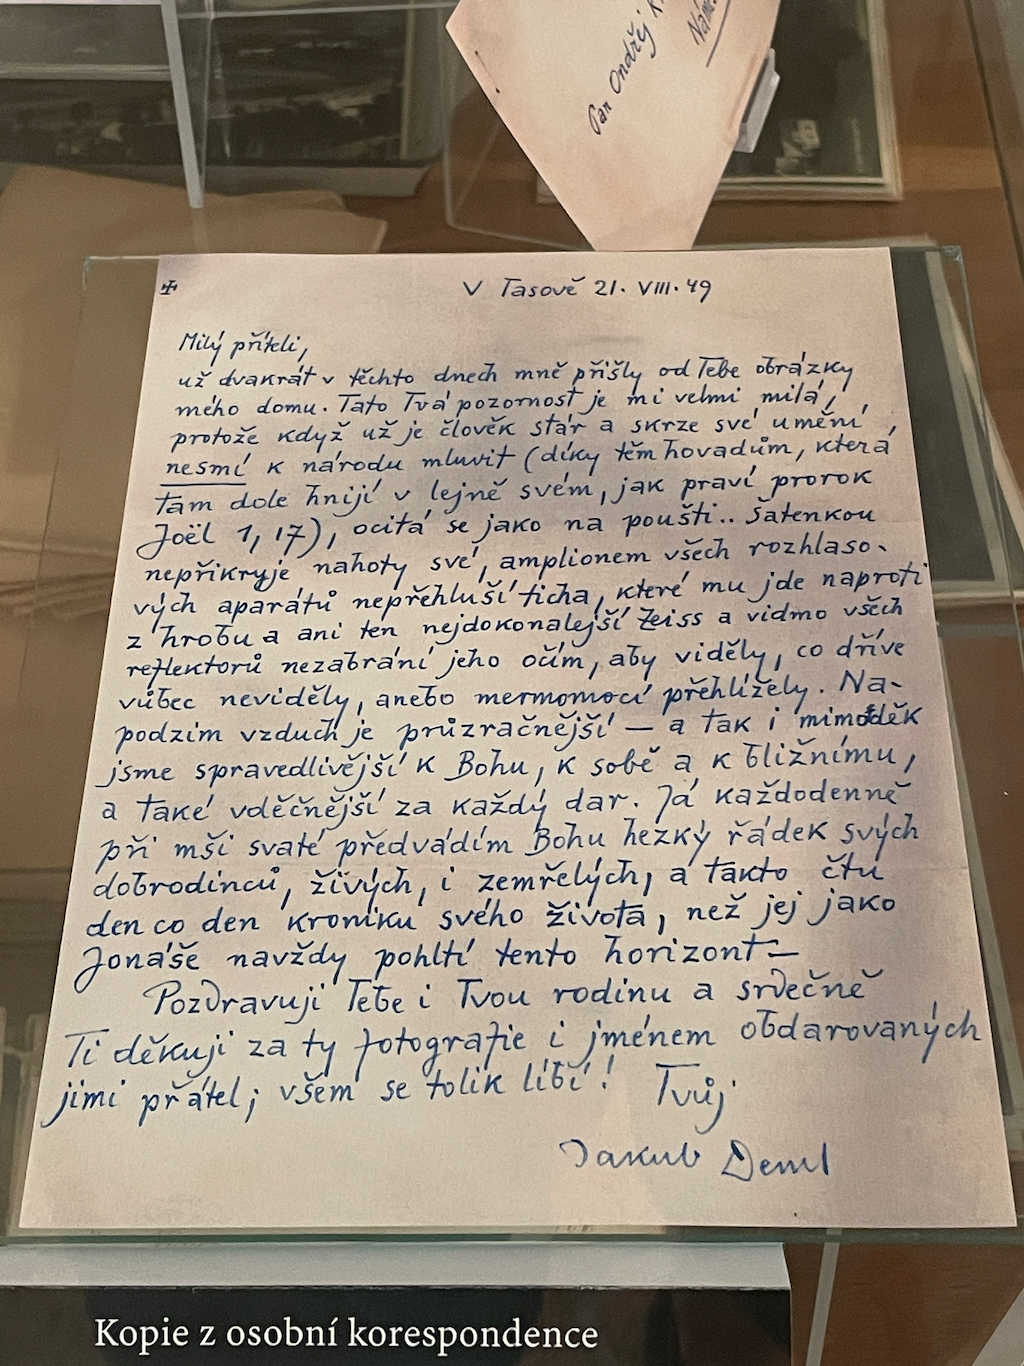 Pan Ondřej
✠ V Tasově 21. VIII. 49
Milý příteli,
už dvakrát v těchto dnech mně přišly od Tebe obrázky
mého domu. Tato Tvá pozornost je mi velmi milá,
protože když už je člověk stár a skrze své umění
nesmí k národu mluvit (díky těm hovadům, která
tam dole hnijí v lejně svém, jak praví prorok
Joël 1, 17), ocitá se jako na poušti.. Šatenkou
nepřikryje nahoty své, amplionem všech rozhlaso-
vých aparátů nepřehluší ticha, které mu jde naproti
z hrobu a ani ten nejdokonalejší Zeiss a vidmo všech
reflektorů nezabrání jeho očím, aby viděly, co dříve
vůbec neviděly, anebo mermomocí přehlížely. Na-
podzim vzduch je průzračnější — a tak i mimoděk
jsme spravedlivější k Bohu, k sobě a k bližnímu,
a také vděčnější za každý dar. Já každodenně
při mši svaté předvádím Bohu hezký řádek svých
dobrodinců, živých, i zemřelých, a takto čtu
den co den kroniku svého života, než jej jako
Jonáše navždy pohltí tento horizont—
Pozdravuji Tebe i Tvou rodinu a srdečně
Ti děkuji za ty fotografie i jménem obdarovaných
jimi přátel; všem se tolik líbí! Tvůj
Jakub Deml
Kopie z osobní korespondence